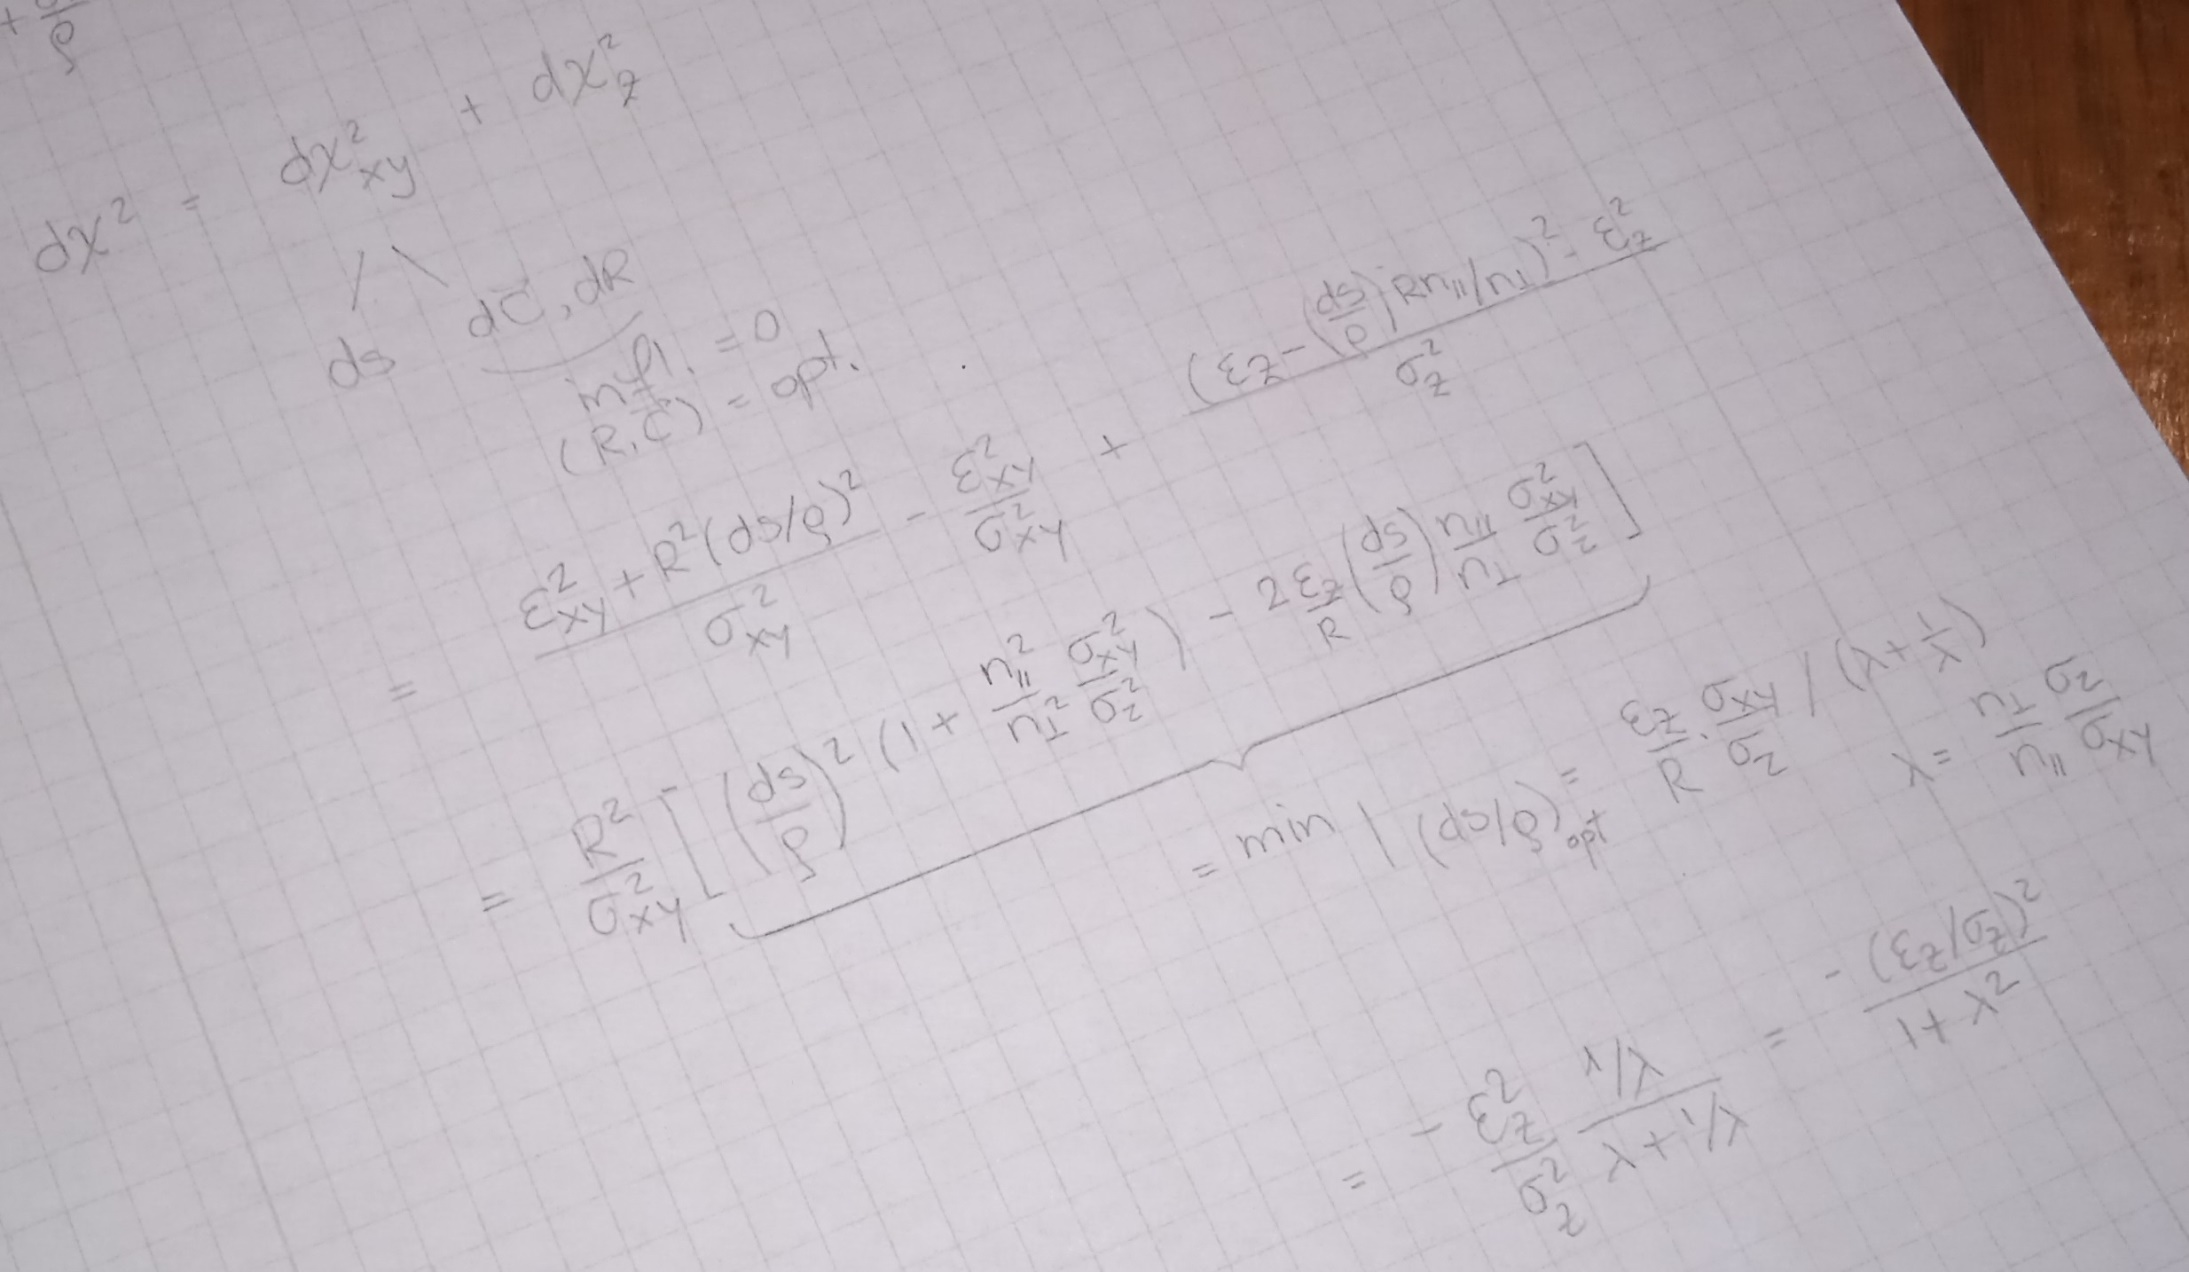 + ρ
dχ² = dχ²_xy + dχ²_z
/ \
ds dC⃗, dR
infl. = 0
(R, C⃗) = opt.
= (ε²_xy + R²(ds/ρ)²)/σ²_xy - ε²_xy/σ²_xy + ((ε_z - (ds/ρ) R n_∥/n_⊥)² - ε²_z)/σ²_z
= R²/σ²_xy [(ds/ρ)² (1 + n_∥²/n_⊥² σ²_xy/σ²_z) - 2 ε_z/R (ds/ρ) n_∥/n_⊥ σ²_xy/σ²_z]
= min | (ds/ρ)_opt = ε_z/R · σ_xy/σ_z / (λ + 1/λ)
λ = n_⊥/n_∥ σ_z/σ_xy
= - ε²_z/σ²_z (1/λ)/(λ + 1/λ) = -(ε_z/σ_z)²/(1 + λ²)